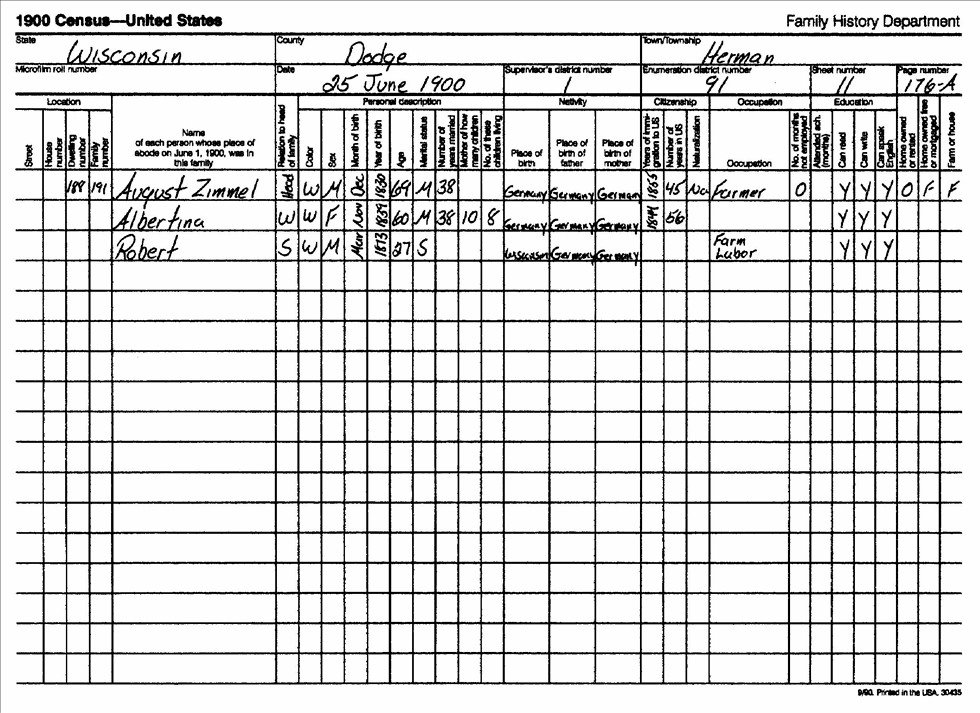 1900 Census—United States Family History Department
State County Town/Township
Wisconsin Dodge Herman
Microfilm roll number Date Supervisor's district number Enumeration district number Sheet number Page number
25 June 1900 1 91 11 176-A
Location Personal description Nativity Citizenship Occupation Education
Street House number Dwelling number Family number Name of each person whose place of abode on June 1, 1900, was in this family Relation to head of family Color Sex Month of birth Year of birth Age Marital status Number of years married Mother of how many children No. of these children living Place of birth Place of birth of father Place of birth of mother Year of immigration to US Number of years in US Naturalization Occupation No. of months not employed Attended sch. (months) Can read Can write Can speak English Home owned or rented Home owned free or mortgaged Farm or house
188 191 August Zimmel Head W M Dec 1830 69 M 38 Germany Germany Germany 1855 45 Na Farmer 0 Y Y Y O F F
Albertina W W F Nov 1839 60 M 38 10 8 Germany Germany Germany 1844 56 Y Y Y
Robert S W M Mar 1873 27 S Wisconsin Germany Germany Farm Labor Y Y Y
9/90. Printed in the USA. 30435